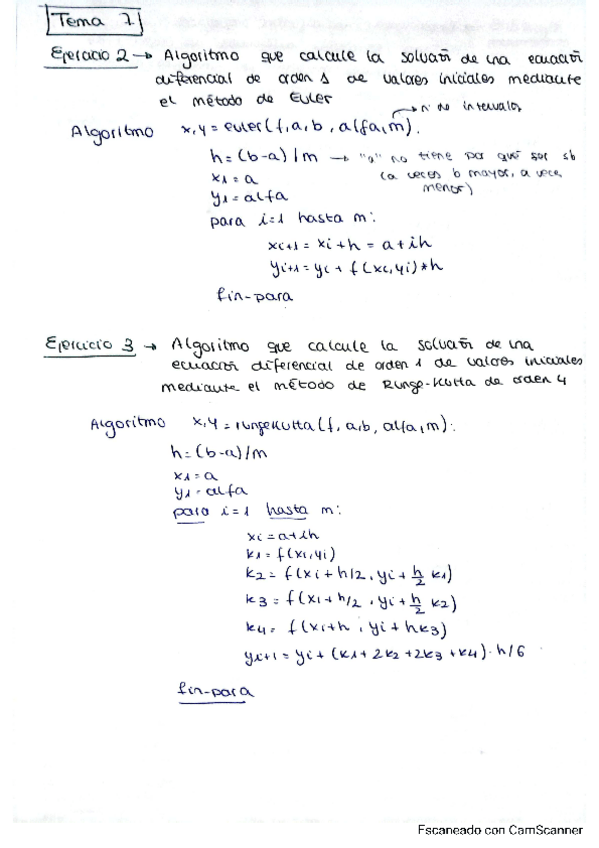 Tema 7
Ejercicio 2 → Algoritmo que calcule la solución de una ecuación
diferencial de orden 1 de valores iniciales mediante
el método de Euler
→ nº intervalos
Algoritmo x,y = euler(f,a,b,alfa,m).
h=(b-a)/m → "a" no tiene por qué ser <b
(a veces b mayor, a veces
menor)
x1=a
y1=alfa
para i=1 hasta m:
xi+1 = xi+h = a+ih
yi+1=yi+f(xi,yi)*h
fin-para
Ejercicio 3 → Algoritmo que calcule la solución de una
ecuación diferencial de orden 1 de valores iniciales
mediante el método de Runge-Kutta de orden 4
Algoritmo x,y = rungeKutta(f,a,b,alfa,m):
h=(b-a)/m
x1=a
y1=alfa
para i=1 hasta m:
xi=a+ih
k1=f(xi,yi)
k2=f(xi+h/2,yi+h/2 k1)
k3=f(xi+h/2,yi+h/2 k2)
k4=f(xi+h,yi+hk3)
yi+1=yi+(k1+2k2+2k3+k4)·h/6
fin-para
Escaneado con CamScanner